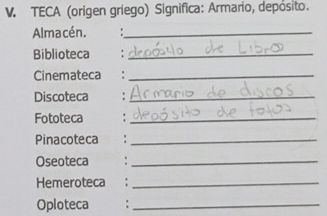 V. TECA (origen griego) Significa: Armario, depósito.
Almacén. :
Biblioteca : depósito de Libro
Cinemateca :
Discoteca : Armario de discos
Fototeca : depósito de fotos
Pinacoteca :
Oseoteca :
Hemeroteca :
Oploteca :